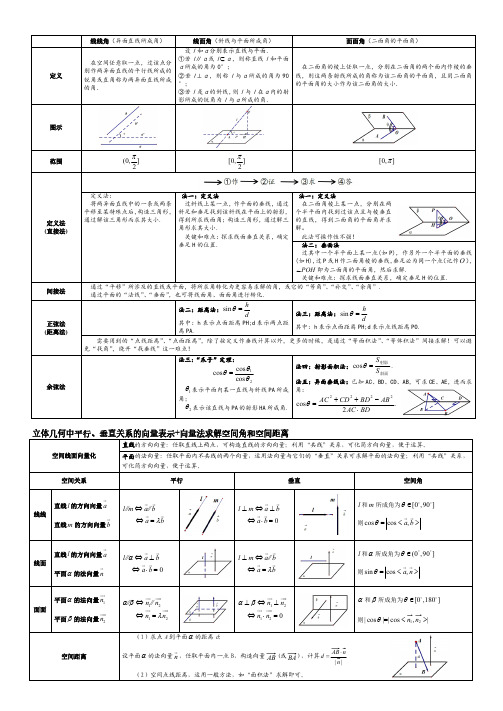 线线角(异面直线所成角)
线面角(斜线与平面所成角)
面面角(二面角的平面角)
定义
在空间任意取一点,过该点分别作两异面直线的平行线所成的锐角或直角称为两异面直线所成的角.
设 l 和 α 分别表示直线与平面.
①若 l∥α 或 l⊂α,则称直线 l 和平面 α 所成的角为 0°;
②若 l⊥α,则称 l 与 α 所成的角为 90°;
③若 l 是 α 的斜线,则 l 与 l 在 α 内的射影所成的锐角为 l 与 α 所成的角.
在二面角的棱上任取一点,分别在二面角的两个面内作棱的垂线,则这两条射线所成的角称为该二面角的平面角,且则二面角的平面角的大小作为该二面角的大小.
图示
范围
(0, π/2]
[0, π/2]
[0, π]
定义法
(直接法)
①作 ②证 ③求 ④答
定义法:
将两异面直线中的一条或两条平移至某特殊点后,构造三角形,通过解该三角形而求其大小.
法一:定义法
过斜线上某一点,作平面的垂线,通过斜足和垂足找到该斜线在平面上的射影,得到所求线面角;构造三角形,通过解三角形求其大小.
关键和难点:探求线面垂直关系,确定垂足 H 的位置.
法一:定义法
在二面角棱上某一点,分别在两个半平面内找到过该点且与棱垂直的直线,得到二面角的平面角并求解.
此法可操作性不强!
法二:垂面法
过其中一个半平面上某一点(如 P),作另外一个半平面的垂线(如 H),过 P 或 H 作二面角棱的垂线,垂足必为同一个点(记作 O),∠POH 即为二面角的平面角,然后求解.
关键和难点:探求线面垂直关系,确定垂足 H 的位置.
间接法
通过“平移”所涉及的直线或平面,将所求角转化为更容易求解的角,或它的“等角”、“补交”、“余角”.
通过平面的“法线”、“垂面”,也可将线面角、面面角进行转化.
正弦法
(距离法)
法二:距离法:sinθ = h/d
其中:h 表示点面距离 PH;d 表示两点距离 PA.
法三:距离法:sinθ = h/d
其中:h 表示点面距离 PH;d 表示点线距离 PO.
需要得到的“点线距离”、“点面距离”,除了按定义作垂线计算以外,更多的时候,是通过“等面积法”、“等体积法”间接求解!可以避免“找角”,绕开“找垂线”这一难点!
余弦法
法三:“爪子”定理:
cosθ = cosθ₁/cosθ₂
θ₁ 表示平面内某一直线与斜线 PA 所成角;
θ₂ 表示该直线与 PA 的射影 HA 所成角.
法四:射影面积法:cosθ = S射影/S斜面.
法五:异面垂线法:已知 AC、BD、CD、AB,可求 CE、AE,进而求角:
cosθ = (AC² + CD² + BD² − AB²)/(2AC·BD)
立体几何中平行、垂直关系的向量表示+向量法求解空间角和空间距离
空间线面向量化
直线的方向向量:任取直线上两点,可构造直线的方向向量;利用“共线”关系,可化简方向向量,便于运算.
平面的法向量:任取平面内不共线的两个向量,运用法向量与它们的“垂直”关系可求解平面的法向量;利用“共线”关系,可化简方向向量,便于运算.
空间关系
平行
垂直
空间角
线线
直线 l 的方向向量 a
直线 m 的方向向量 b
l//m ⇔ a//b
⇔ a = λb
l⊥m ⇔ a⊥b
⇔ a·b = 0
l 和 m 所成角为 θ∈[0°,90°]
则 cosθ = |cos<a,b>|
线面
直线 l 的方向向量 a
平面 α 的法向量 n
l//α ⇔ a⊥b
⇔ a·b = 0
l⊥m ⇔ a//b
⇔ a = λb
l 和 α 所成角为 θ∈[0°,90°]
则 sinθ = |cos<a,n>|
面面
平面 α 的法向量 n₁
平面 β 的法向量 n₂
α//β ⇔ n₁//n₂
⇔ n₁ = λn₂
α⊥β ⇔ n₁⊥n₂
⇔ n₁·n₂ = 0
α 和 β 所成角为 θ∈[0°,180°]
则 |cosθ| = |cos<n₁,n₂>|
空间距离
(1)求点 A 到平面 α 的距离 d:
设平面 α 的法向量 n,任取平面内一点 B,构造向量 AB(或 BA),计算 d = AB·n/|n|
(2)空间点线距离,运用一般方法,如“面积法”求解即可.